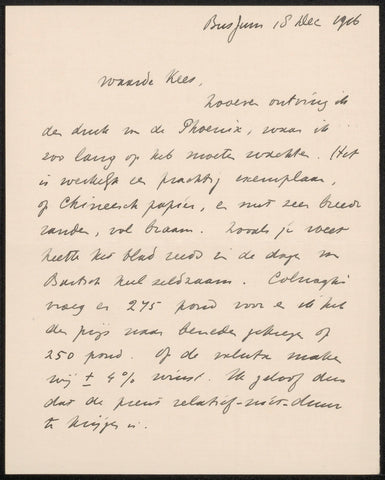 Bussum 18 Dec 1916
waarde Kees,
zooeven ontving ik
den druk v. de Phoenix, waar ik
zoo lang op heb moeten wachten. Het
is werkelijk een prachtig exemplaar,
op Chineesch papier, en met zeer breede
randen, vol braam. Zooals je weet
heette het blad reeds in de dagen v.
Bartsch heel zeldzaam. Colnaghi
vroeg er 275 pond voor en ik heb
den prijs naar beneden gekregen op
250 pond. Op de valuta maken
wij ± 4% winst. Ik geloof dus
dat de prent relatief-niet-duur
te krijgen is.